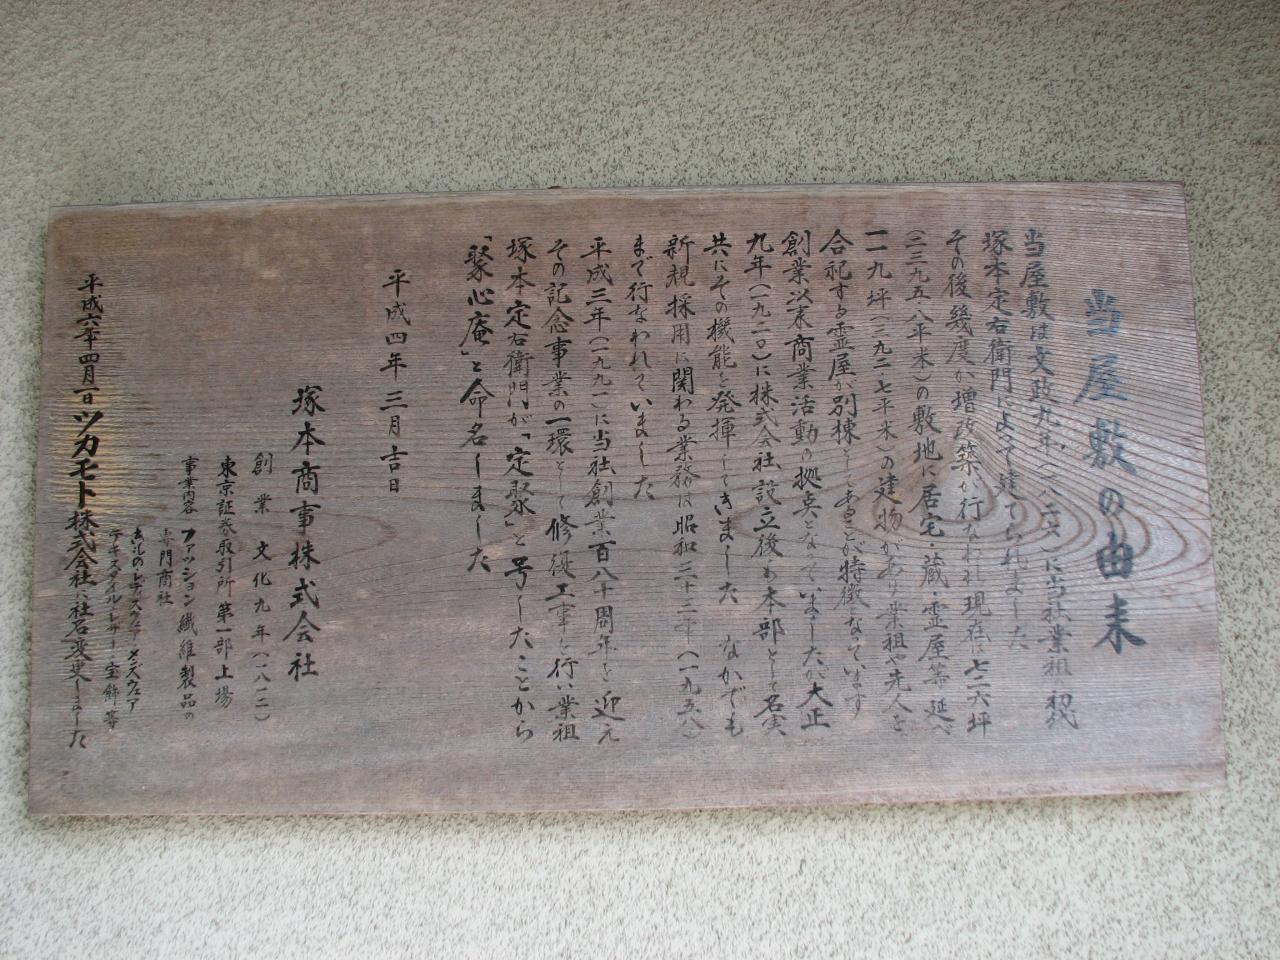 当屋敷の由来
当屋敷は文政九年(一八二六)に当社業祖 初代
塚本定右衛門によって建てられました
その後幾度か増改築が行なわれ現在は七二六坪
(二三九五・八平米)の敷地に居宅・蔵・霊屋等 延べ
一一九坪(三九二・七平米)の建物があり業祖や先人を
合祀する霊屋が別棟としてあることが特徴となっています
創業以来商業活動の拠点となっていましたが大正
九年(一九二〇)に株式会社設立後も本部として名実
共にその機能を発揮してきました なかでも
新規採用に関わる業務は昭和三十三年(一九五八)
まで行なわれていました
平成三年(一九九一)に当社創業百八十周年を迎え
その記念事業の一環として修復工事を行い業祖
塚本定右衛門が「定聚」と号したことから
「聚心庵」と命名しました
平成四年三月吉日
塚本商事株式会社
創業 文化九年(一八一二)
東京証券取引所 第一部上場
事業内容 ファッション繊維製品の
専門商社
きもの レディスウェア メンズウェア
テキスタイル レザー 宝飾 等
平成六年四月一日ツカモト株式会社に社名変更しました